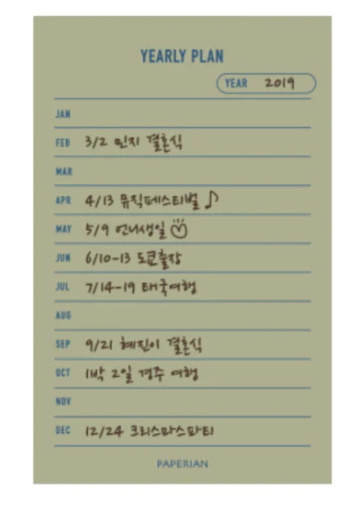 YEARLY PLAN
YEAR 2019
JAN
FEB 3/2 민지 결혼식
MAR
APR 4/13 뮤직페스티벌
MAY 5/9 언니생일
JUN 6/10-13 도쿄출장
JUL 7/14-19 태국여행
AUG
SEP 9/21 혜진이 결혼식
OCT 1박 2일 경주 여행
NOV
DEC 12/24 크리스마스파티
PAPERIAN